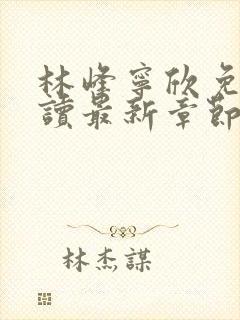 林峰寧欣免
讀最新章節
林杰謀